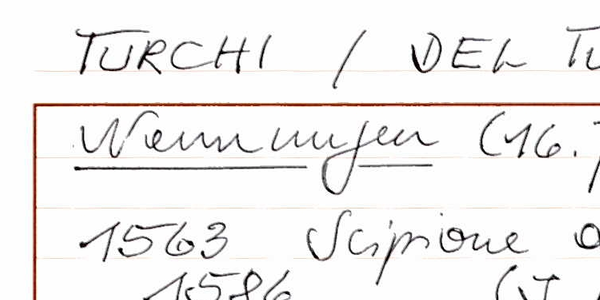 TURCHI / DEL TU
Nennungen (16.
1563 Scipione
1586 (J.